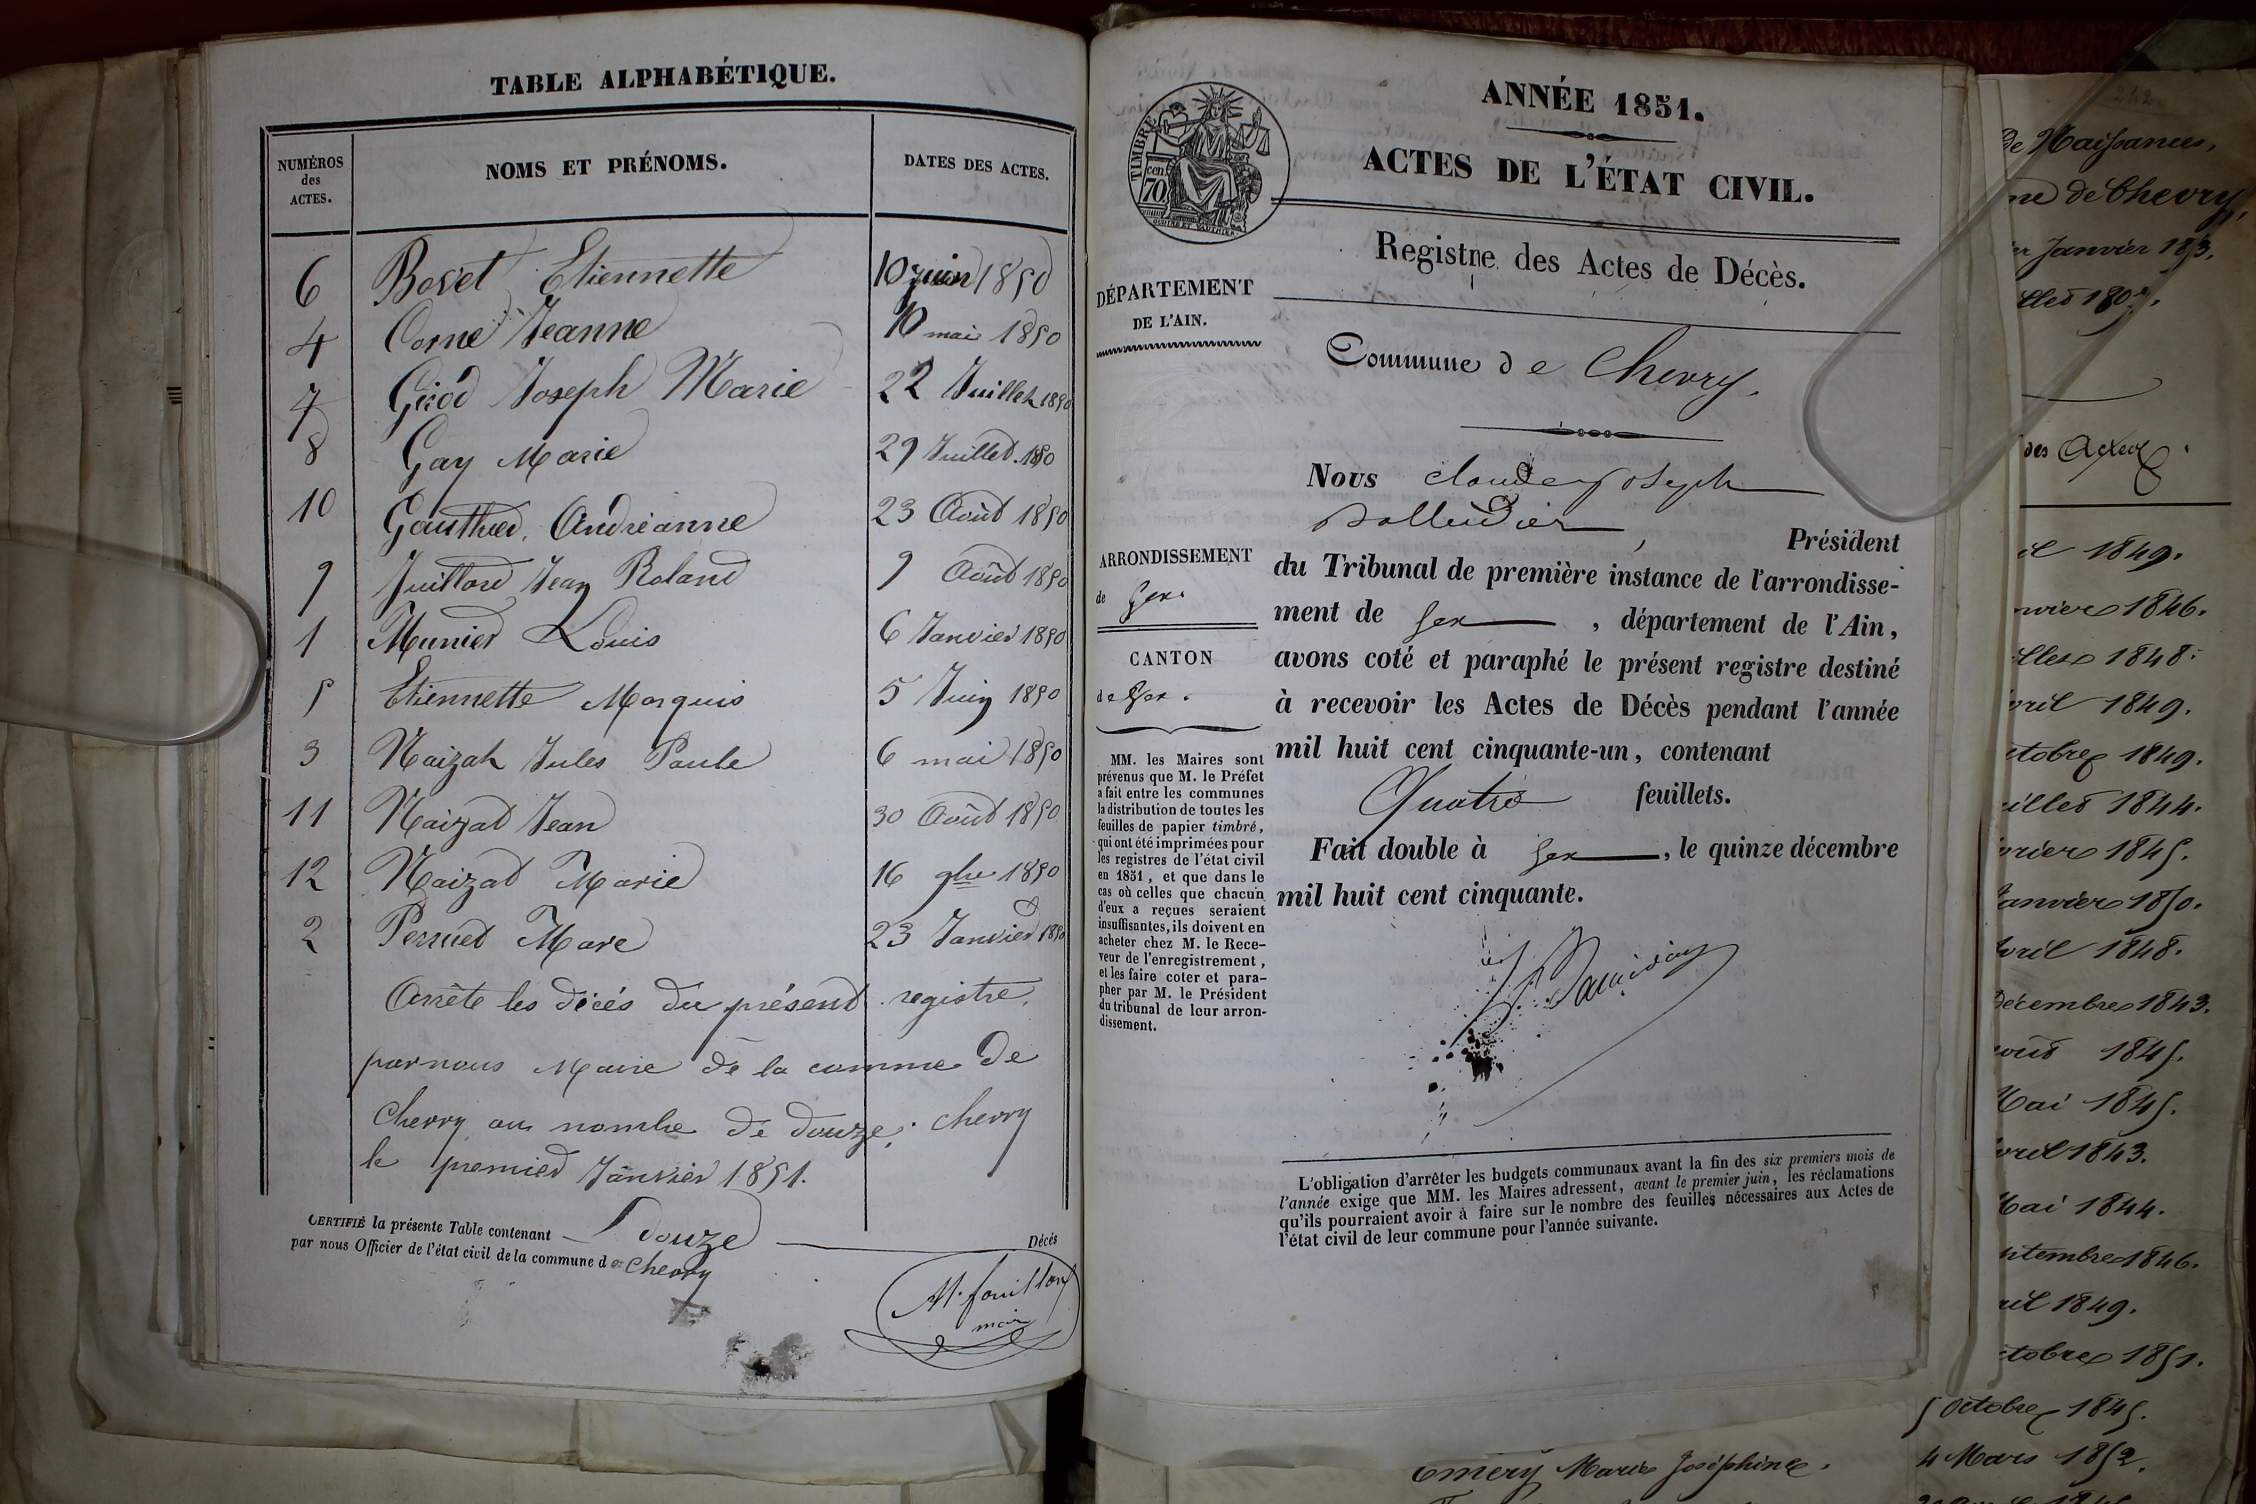 TABLE ALPHABÉTIQUE.
NUMÉROS des ACTES. NOMS ET PRÉNOMS. DATES DES ACTES.
6 Bovet Etiennette 10 juin 1850
4 Corne Jeanne 10 mai 1850
7 Girod Joseph Marie 22 Juillet 1850
8 Gay Marie 29 Juillet 1850
10 Gauthier Andréanne 23 Août 1850
9 Juillard Jean Roland 9 Août 1850
1 Munier Louis 6 Janvier 1850
5 Etiennette Marquis 5 Juin 1850
3 Naizat Jules Paule 6 mai 1850
11 Naizat Jean 30 Août 1850
12 Naizat Marie 16 9bre 1850
2 Perruet Marc 23 Janvier 1850
Arrête les décés du présent registre.
par nous Maire de la comme de
Chevry au nombre de douze. Chevry
le premier Janvier 1851.
CERTIFIÉ la présente Table contenant douze Décés
par nous Officier de l'état civil de la commune de Chevry
M. fouilloux
maire
TIMBRE
70 cen
ANNÉE 1851.
ACTES DE L'ÉTAT CIVIL.
Registre des Actes de Décès.
DÉPARTEMENT
DE L'AIN.
Commune de Chevry.
ARRONDISSEMENT
de Gex.
CANTON
de Gex.
MM. les Maires sont
prévenus que M. le Préfet
a fait entre les communes
la distribution de toutes les
feuilles de papier timbré,
qui ont été imprimées pour
les registres de l'état civil
en 1851, et que dans le
cas où celles que chacun
d'eux a reçues seraient
insuffisantes, ils doivent en
acheter chez M. le Rece-
veur de l'enregistrement,
et les faire coter et para-
pher par M. le Président
du tribunal de leur arron-
dissement.
Nous Claude Joseph
, Président
du Tribunal de première instance de l'arrondisse-
ment de Gex, département de l'Ain,
avons coté et paraphé le présent registre destiné
à recevoir les Actes de Décès pendant l'année
mil huit cent cinquante-un, contenant
Quatre feuillets.
Fait double à Gex, le quinze décembre
mil huit cent cinquante.
L'obligation d'arrêter les budgets communaux avant la fin des six premiers mois de
l'année exige que MM. les Maires adressent, avant le premier juin, les réclamations
qu'ils pourraient avoir à faire sur le nombre des feuilles nécessaires aux Actes de
l'état civil de leur commune pour l'année suivante.
de Naissances,
de Chevry,
Janvier 183.
des Actes
1849.
1846.
1848.
1849.
1849.
1844.
1845.
Janvier 1850.
1848.
Décembre 1843.
1845.
Mai 1845.
1843.
Mai 1844.
1846.
1849.
1851.
5 Octobre 1845.
Emery Marie Joséphine. 4 Mars 1852.